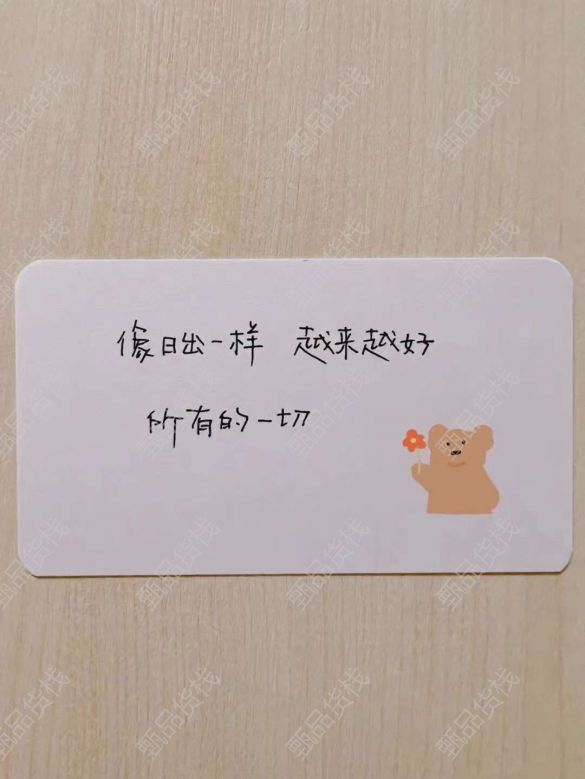 像日出一样 越来越好
所有的一切
甄品货栈